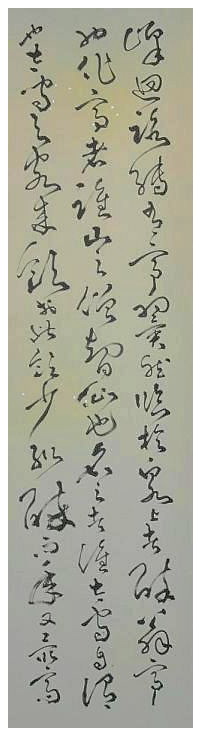 峰迴路轉有亭翼然臨於泉上者醉翁亭
也作亭者誰山之僧智仙也名之者誰太守自謂
也太守與客來飲於此飲少輒醉而年又最高